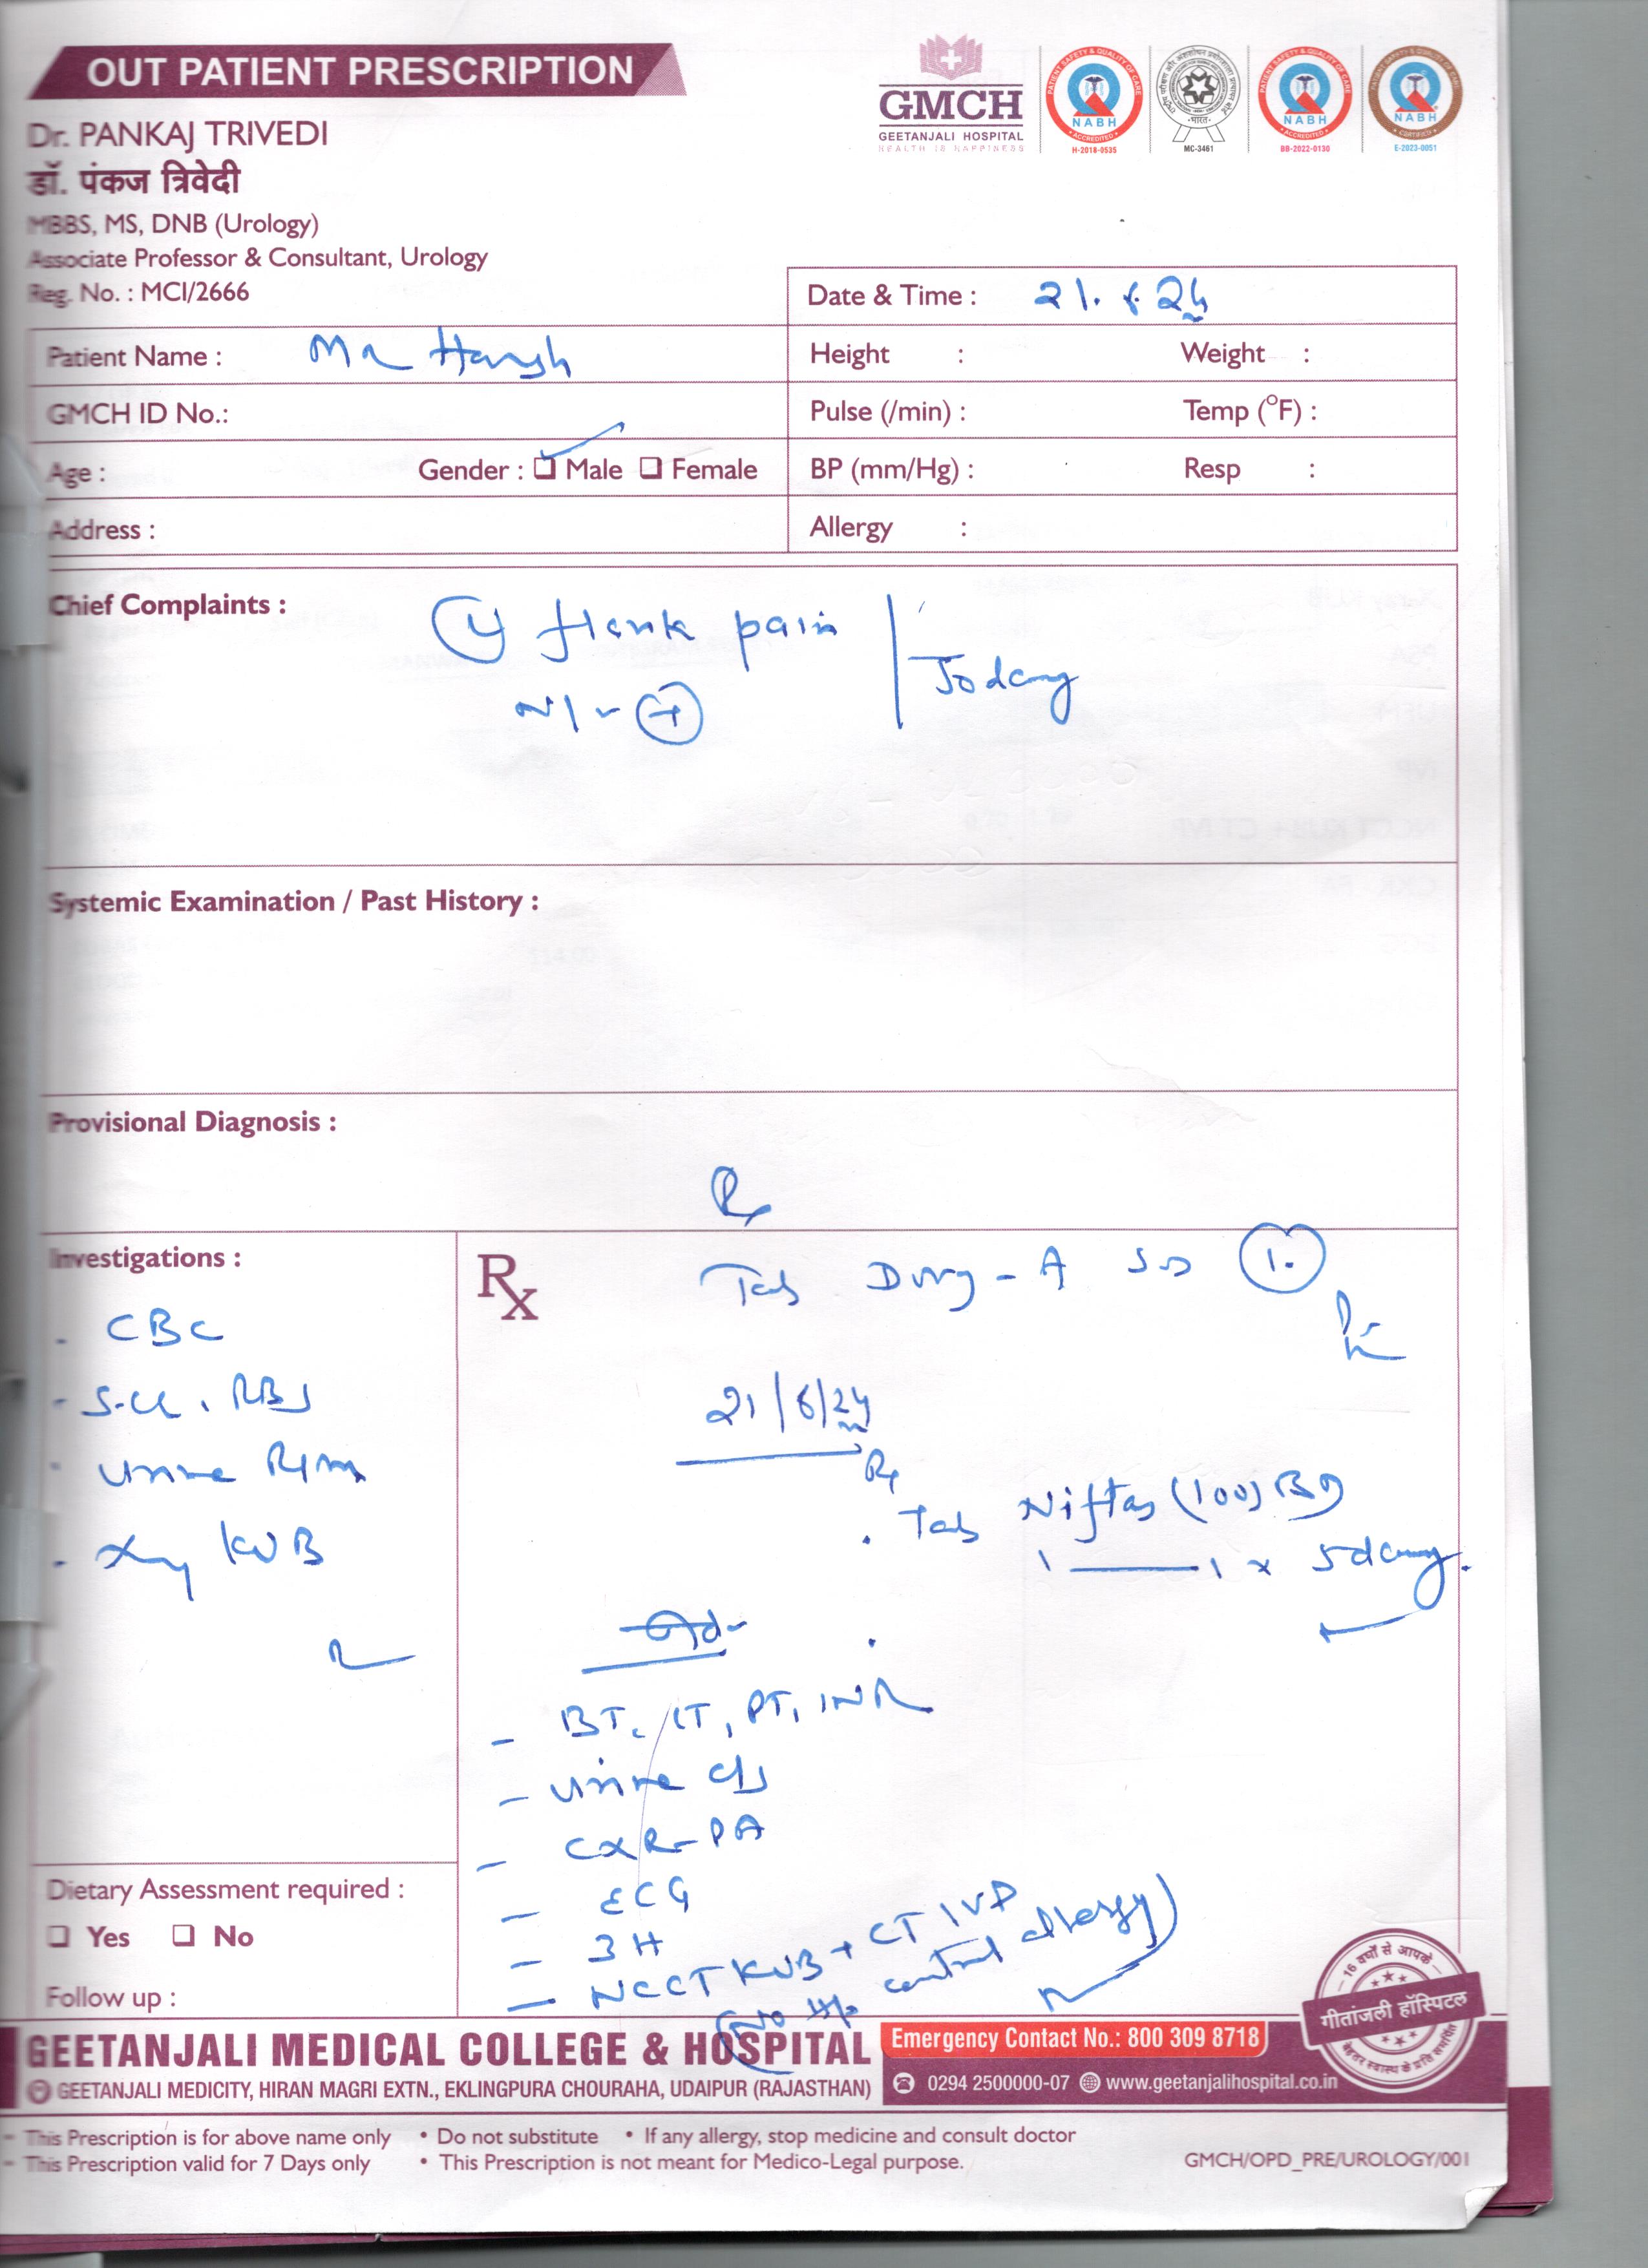 OUT PATIENT PRESCRIPTION
GMCH
GEETANJALI HOSPITAL
HEALTH IS HAPPINESS
NABH
ACCREDITED
H-2018-0535
MC-3461
NABH
ACCREDITED
BB-2022-0130
NABH
CERTIFIED
E-2023-0051
Dr. PANKAJ TRIVEDI
डॉ. पंकज त्रिवेदी
MBBS, MS, DNB (Urology)
Associate Professor & Consultant, Urology
Reg. No. : MCI/2666
Date & Time : 21. 24
Patient Name : Mr Harsh
Height : Weight :
GMCH ID No.:
Pulse (/min) : Temp (°F) :
Age : Gender : Male Female
BP (mm/Hg) : Resp :
Address :
Allergy :
Chief Complaints :
flank pain
N/V (+)
Today
Systemic Examination / Past History :
Provisional Diagnosis :
Rx
Investigations :
- CBC
- S. Cr. RBS
- Urine R/m
- Xray KUB
Rx
Tab - A
21/6/24
Rx
. Tab Niftas (100) BD
1 —— 1 x 5 days.
Adv
- BT, CT, PT, INR
- Urine c/s
- CXR-PA
- ECG
- 3H
- NCCT KUB + CT IVP
(No H/o allergy)
Dietary Assessment required :
Yes No
Follow up :
16 वर्षों से आपके
गीतांजली हॉस्पिटल
बेहतर स्वास्थ्य के प्रति समर्पित
GEETANJALI MEDICAL COLLEGE & HOSPITAL
Emergency Contact No.: 800 309 8718
GEETANJALI MEDICITY, HIRAN MAGRI EXTN., EKLINGPURA CHOURAHA, UDAIPUR (RAJASTHAN)
0294 2500000-07 www.geetanjalihospital.co.in
- This Prescription is for above name only • Do not substitute • If any allergy, stop medicine and consult doctor
- This Prescription valid for 7 Days only • This Prescription is not meant for Medico-Legal purpose.
GMCH/OPD_PRE/UROLOGY/001